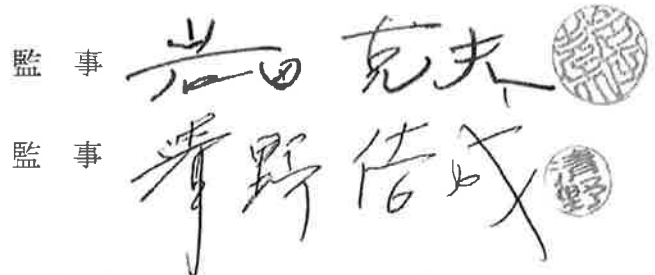 監事 岩田 克夫
監事 清野 佳成 清野